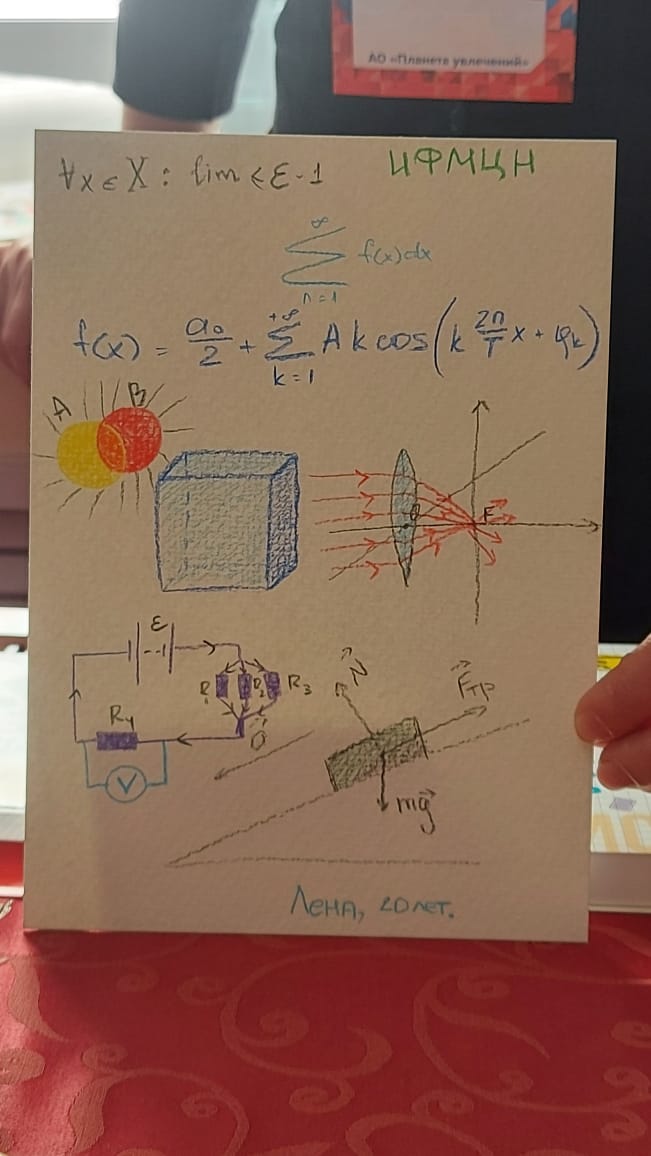 АО «Планета увлечений»
∀x∈X: lim < ε-1
ИФМЦН
∞
∑ f(x)dx
n=1
f(x) = a₀/2 + ∑ Ak cos(k 2π/T x + φk)
+∞
k=1
A B
O F
ε
R₁ R₂ R₃
R₄
V
N⃗
F⃗тр
mg⃗
Лена, 20 лет.